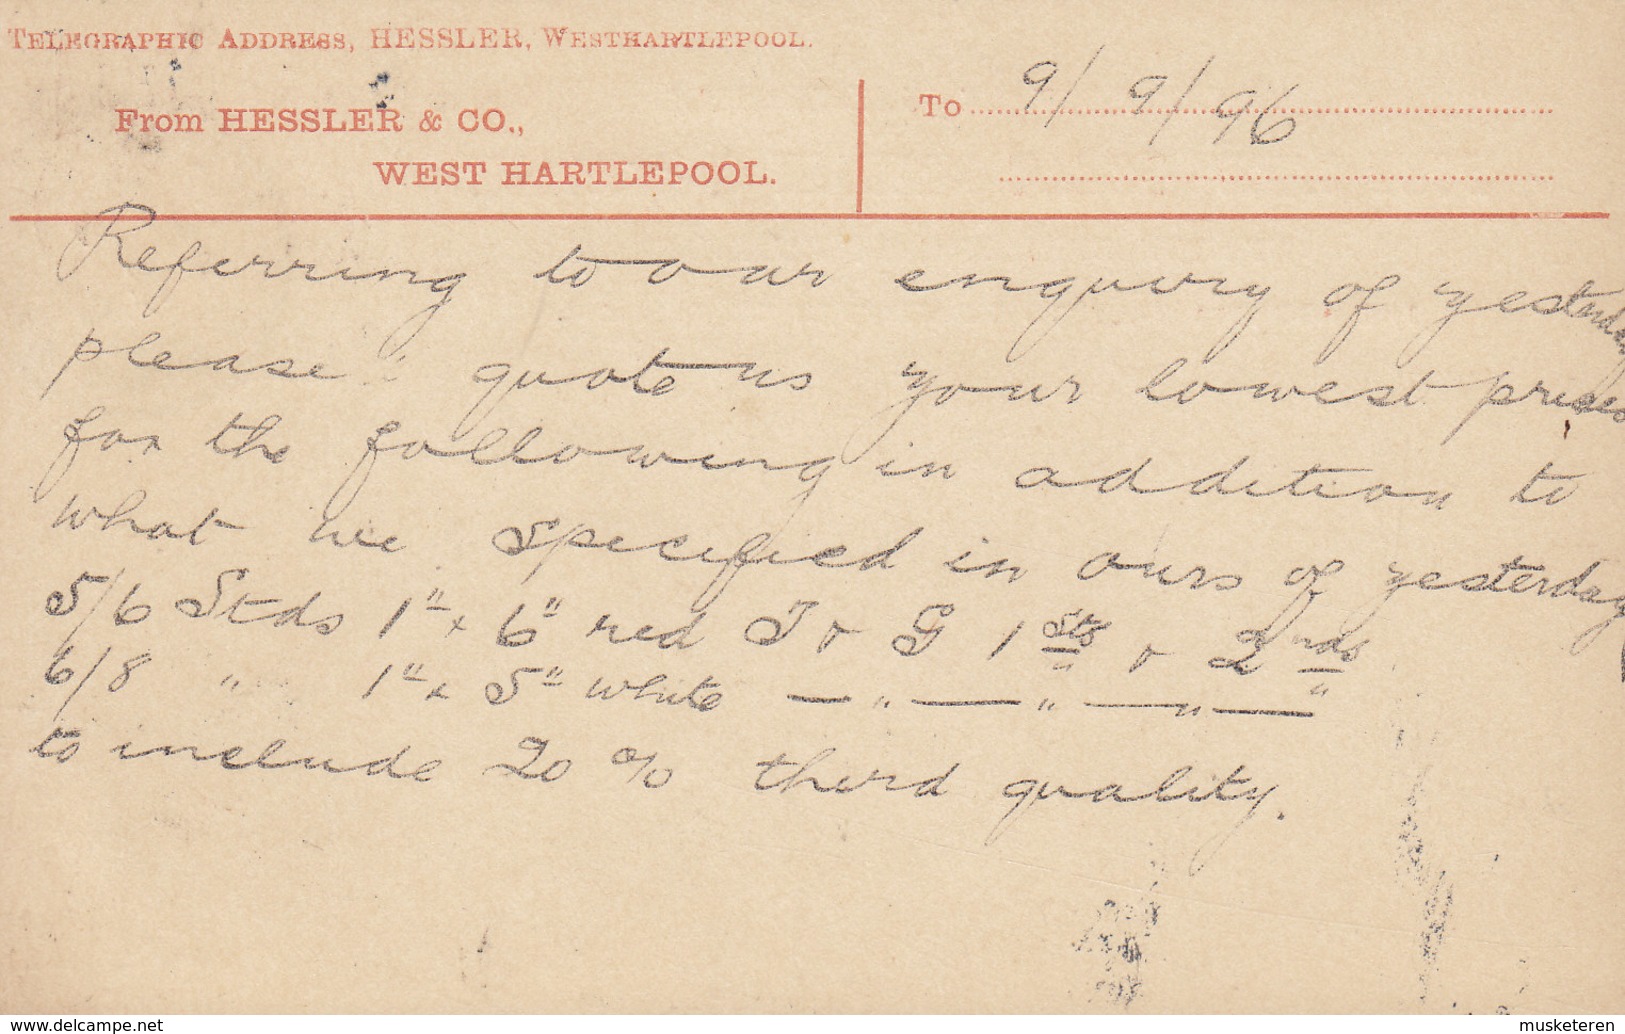 TELEGRAPHIC ADDRESS, HESSLER, WESTHARTLEPOOL.
From HESSLER & CO.,
WEST HARTLEPOOL.
To 9/9/96
Referring to our enquiry of yesterday
please quote us your lowest prices
for the following in addition to
what we specified in ours of yesterday
5/6 Stds 1" x 6" red T & G 1sts & 2nds
6/8 " 1" x 5" white — " — " — " —
to include 20 % third quality.
www.delcampe.net
musketeren